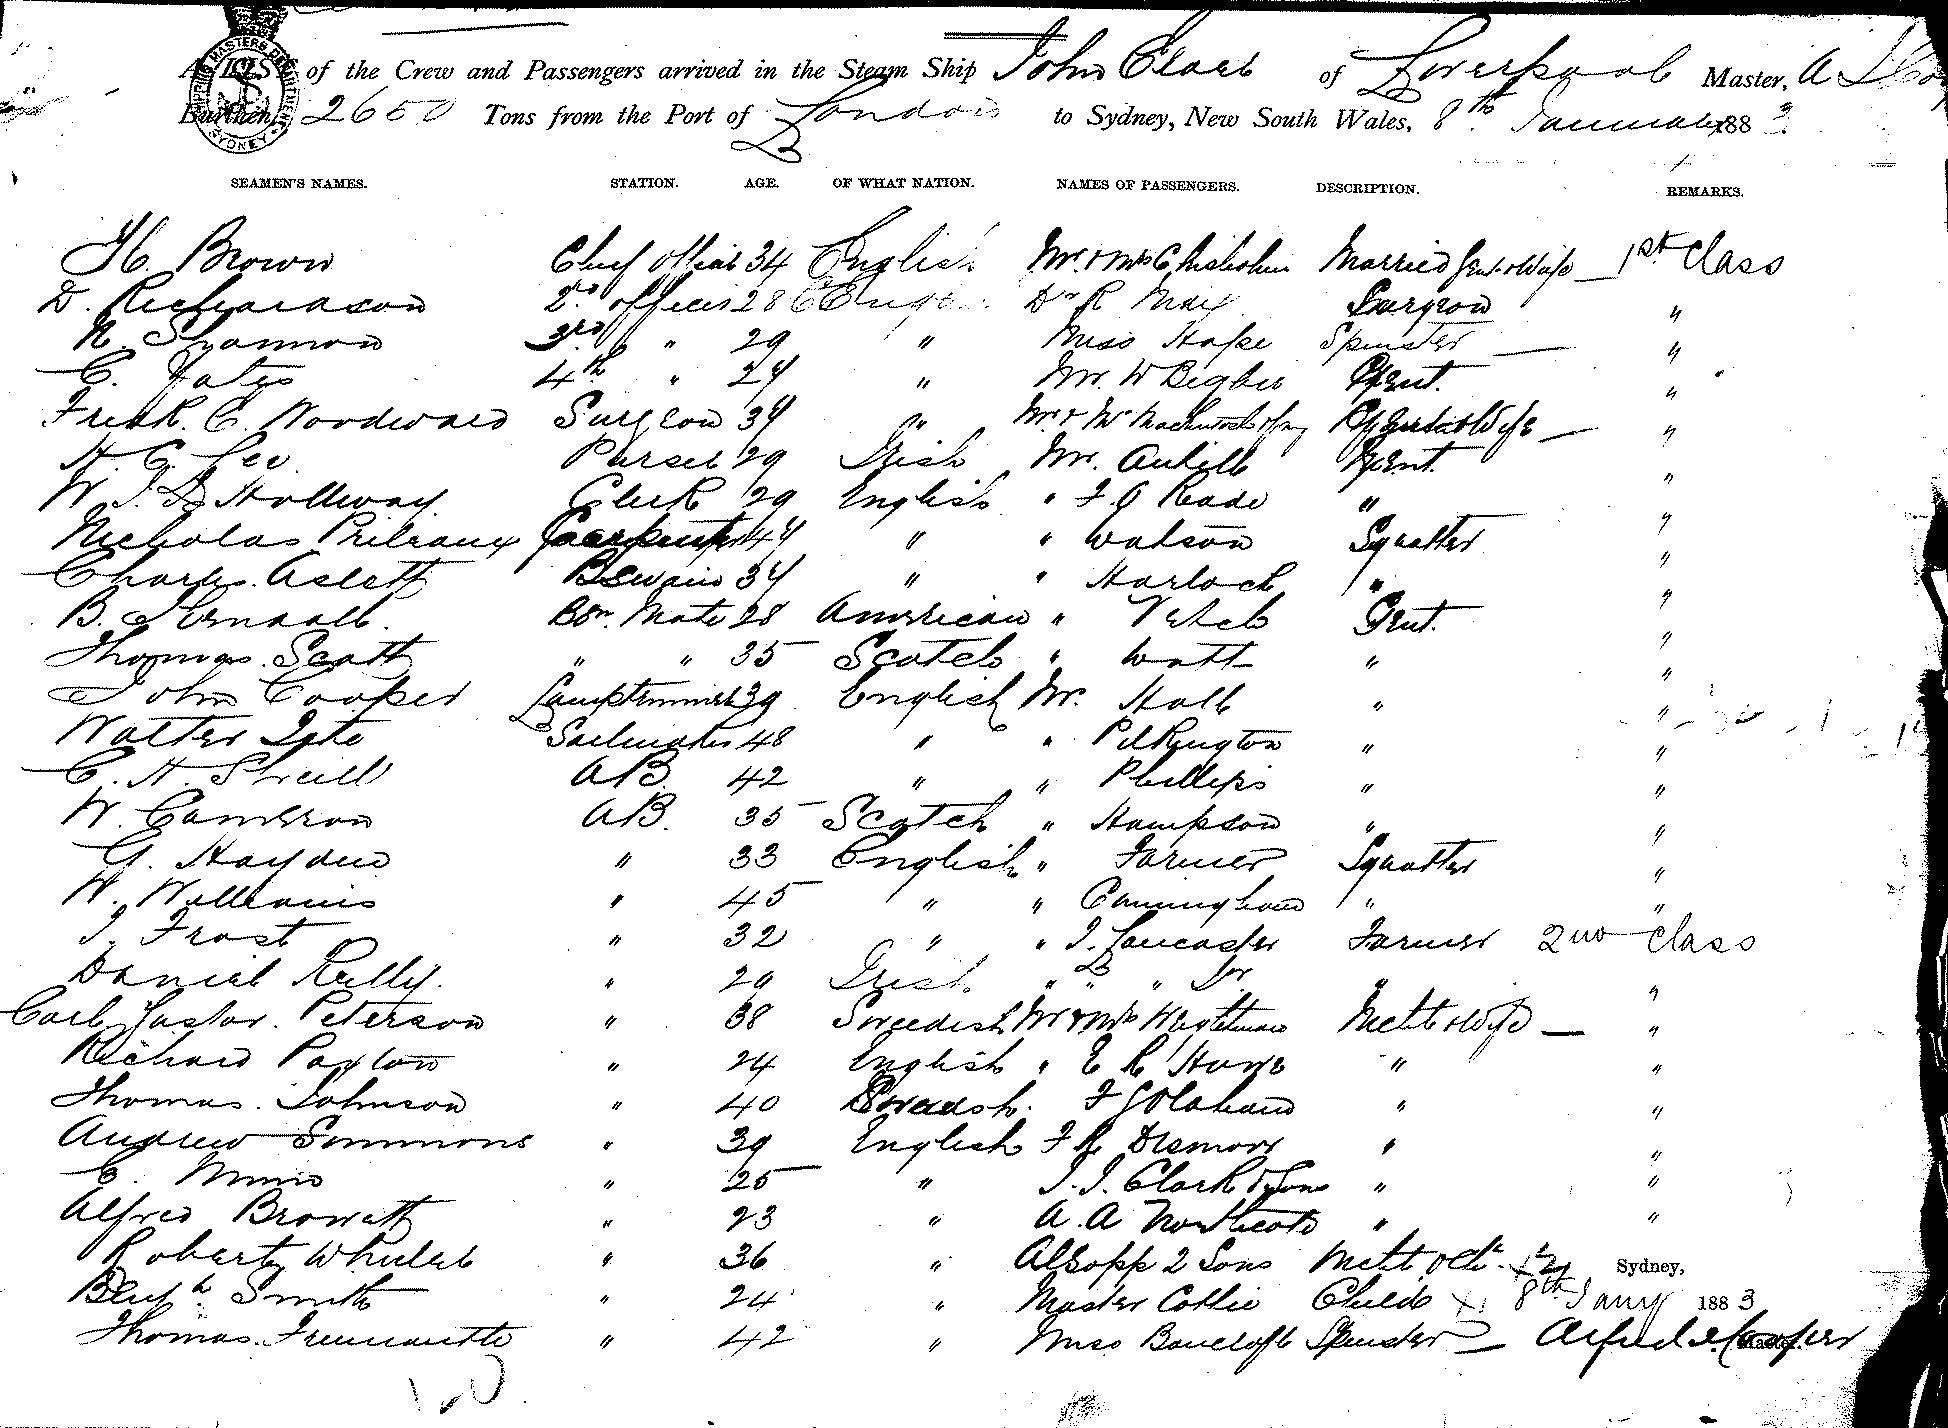 A LIST of the Crew and Passengers arrived in the Steam Ship John Elder of Liverpool Master, A
Burthen, 2650 Tons from the Port of London to Sydney, New South Wales, 8th January 1883
SEAMEN'S NAMES. STATION. AGE. OF WHAT NATION. NAMES OF PASSENGERS. DESCRIPTION. REMARKS.
H. Brown Chief Officer 34 English Mr & Mrs Chisholm Married Gent & Wife — 1st Class
D. Richardson 2nd Officer 28 Eng Dr R May Surgeon "
R. Shannon 3rd " 29 " Miss Hope Spinster — "
C. Yates 4th " 24 " Mr. W Bigbie Gent. "
Fredk. C. Woodward Surgeon 34 " Mr & Mrs Mackintosh Gent & Wife — "
H. G. Lee Purser 29 Irish Mr. Gent. "
W. Hollway Clerk 29 English " F G Reade " "
Nicholas Prideaux Carpenter 44 " " Watson Squatter "
Charles Aslett BSwain 34 " " Harloch " "
B. Kendall. Bsn. Mate 28 American " Veitch Gent. "
Thomas Scott " " 35 Scotch " Watt " "
John Cooper Lamptrimmer 39 English Mr. Hall " "
Walter Sailmaker 48 " " Pilkington " "
C. H. AB 42 " " Phillips " "
W. Cameron AB. 35 Scotch " Hampson " "
G. Hayden " 33 English " Farmer Squatter "
W. Williams " 45 " " Cunningham " "
J. Frost " 32 " " J. Lancaster Farmer 2nd Class
Daniel Reilly. " 29 Irish " " " Jnr " "
Carl Gustav. Peterson " 38 Sweedish Mr & Mrs Wightman Mcht & Wife — "
Richard Paxton " 24 English " E R Howe " "
Thomas. Johnson " 40 Sweedsh. F " "
Andrew Simmons " 39 English F R Dismorr " "
C. Minns " 25 " J. J. Clark & Sons " "
Alfred Browett " 23 " A. A Northcote " "
Robert Wheeler " 36 " Allsopp 2 Sons Sydney,
Smith " 24 " Master Collie Child 8th Jany 1883
Thomas. Freemantle " 42 " Miss Bancroft Spinster — Alfred J. Cooper
Master.